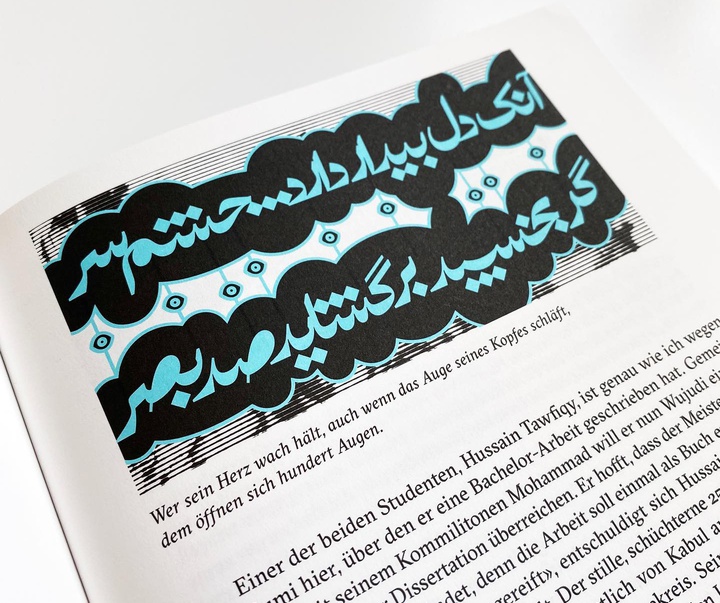 آنک دل بیدار دارد چشم سر
گر بخسپد برگشاید صد بصر
Wer sein Herz wach hält, auch wenn das Auge seines Kopfes schläft,
dem öffnen sich hundert Augen.
Einer der beiden Studenten, Hussain Tawfiqy, ist genau wie ich wegen
hier, über den er eine Bachelor-Arbeit geschrieben hat.
seinem Kommilitonen Mohammad will er nun Wujudi
Dissertation überreichen. Er hofft, dass der Meister
denn die Arbeit soll einmal als Buch
gereift», entschuldigt sich
Der stille, schüchterne
von Kabul
Sein